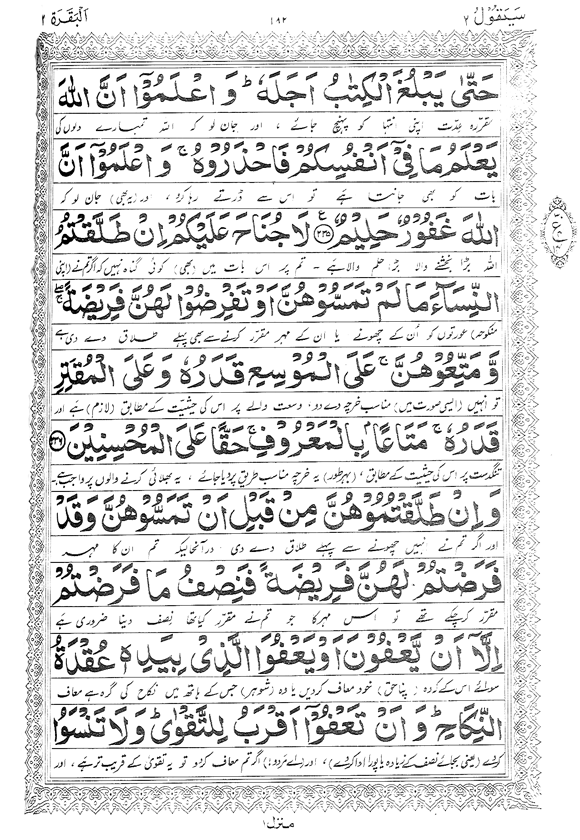 سَيَقُوْلُ ٢
١٩٢
اَلْبَقَرَة ٢
حَتّٰى يَبْلُغَ الْكِتٰبُ اَجَلَهٗ ؕ وَ اعْلَمُوْۤا اَنَّ اللّٰهَ
مقررہ عِدّت اپنی انتہا کو پہنچ جائے ، اور جان لو کہ اللہ تمہارے دلوں کی
يَعْلَمُ مَا فِيْۤ اَنْفُسِكُمْ فَاحْذَرُوْهُ ۚ وَ اعْلَمُوْۤا اَنَّ
بات کو بھی جانتا ہے تو اس سے ڈرتے رہا کرو ، اور (یہ بھی) جان لو کہ
اللّٰهَ غَفُوْرٌ حَلِيْمٌ ﴿٢٣٥﴾ ع لَا جُنَاحَ عَلَيْكُمْ اِنْ طَلَّقْتُمُ
اللہ بڑا بخشنے والا بڑا حلم والا ہے - تم پر اس بات میں (بھی) کوئی گناہ نہیں کہ اگر تم نے (اپنی
النِّسَآءَ مَا لَمْ تَمَسُّوْهُنَّ اَوْ تَفْرِضُوْا لَهُنَّ فَرِيْضَةً ۖۚ
منکوحہ) عورتوں کو اُن کے چھونے یا ان کے مہر مقرر کرنے سے بھی پہلے طلاق دے دی ہے
وَّ مَتِّعُوْهُنَّ ۚ عَلَى الْمُوْسِعِ قَدَرُهٗ وَ عَلَى الْمُقْتِرِ
تو انہیں (ایسی صورت میں) مناسب خرچہ دے دو ، وسعت والے پر اس کی حیثیت کے مطابق (لازم) ہے اور
قَدَرُهٗ ۚ مَتَاعًۢا بِالْمَعْرُوْفِ ۚ حَقًّا عَلَى الْمُحْسِنِيْنَ ﴿٢٣٦﴾
تنگدست پر اس کی حیثیت کے مطابق ، (بہر طور) یہ خرچہ مناسب طریق پر دیا جائے ، یہ بھلائی کرنے والوں پر واجب ہے
وَ اِنْ طَلَّقْتُمُوْهُنَّ مِنْ قَبْلِ اَنْ تَمَسُّوْهُنَّ وَ قَدْ
اور اگر تم نے انہیں چھونے سے پہلے طلاق دے دی درآنحالیکہ تم ان کا مہر
فَرَضْتُمْ لَهُنَّ فَرِيْضَةً فَنِصْفُ مَا فَرَضْتُمْ
مقرر کر چکے تھے تو اس مہر کا جو تم نے مقرر کیا تھا نصف دینا ضروری ہے
اِلَّاۤ اَنْ يَّعْفُوْنَ اَوْ يَعْفُوَا الَّذِيْ بِيَدِهٖ عُقْدَةُ
سوائے اس کے کہ وہ (اپنا حق) خود معاف کر دیں یا وہ (شوہر) جس کے ہاتھ میں نکاح کی گرہ ہے معاف
النِّكَاحِ ؕ وَ اَنْ تَعْفُوْۤا اَقْرَبُ لِلتَّقْوٰى ؕ وَ لَا تَنْسَوُا
کر دے (یعنی بجائے نصف کے زیادہ یا پورا ادا کر دے) ، اور (اے مردو!) اگر تم معاف کر دو تو یہ تقویٰ کے قریب تر ہے ، اور
منزل ١